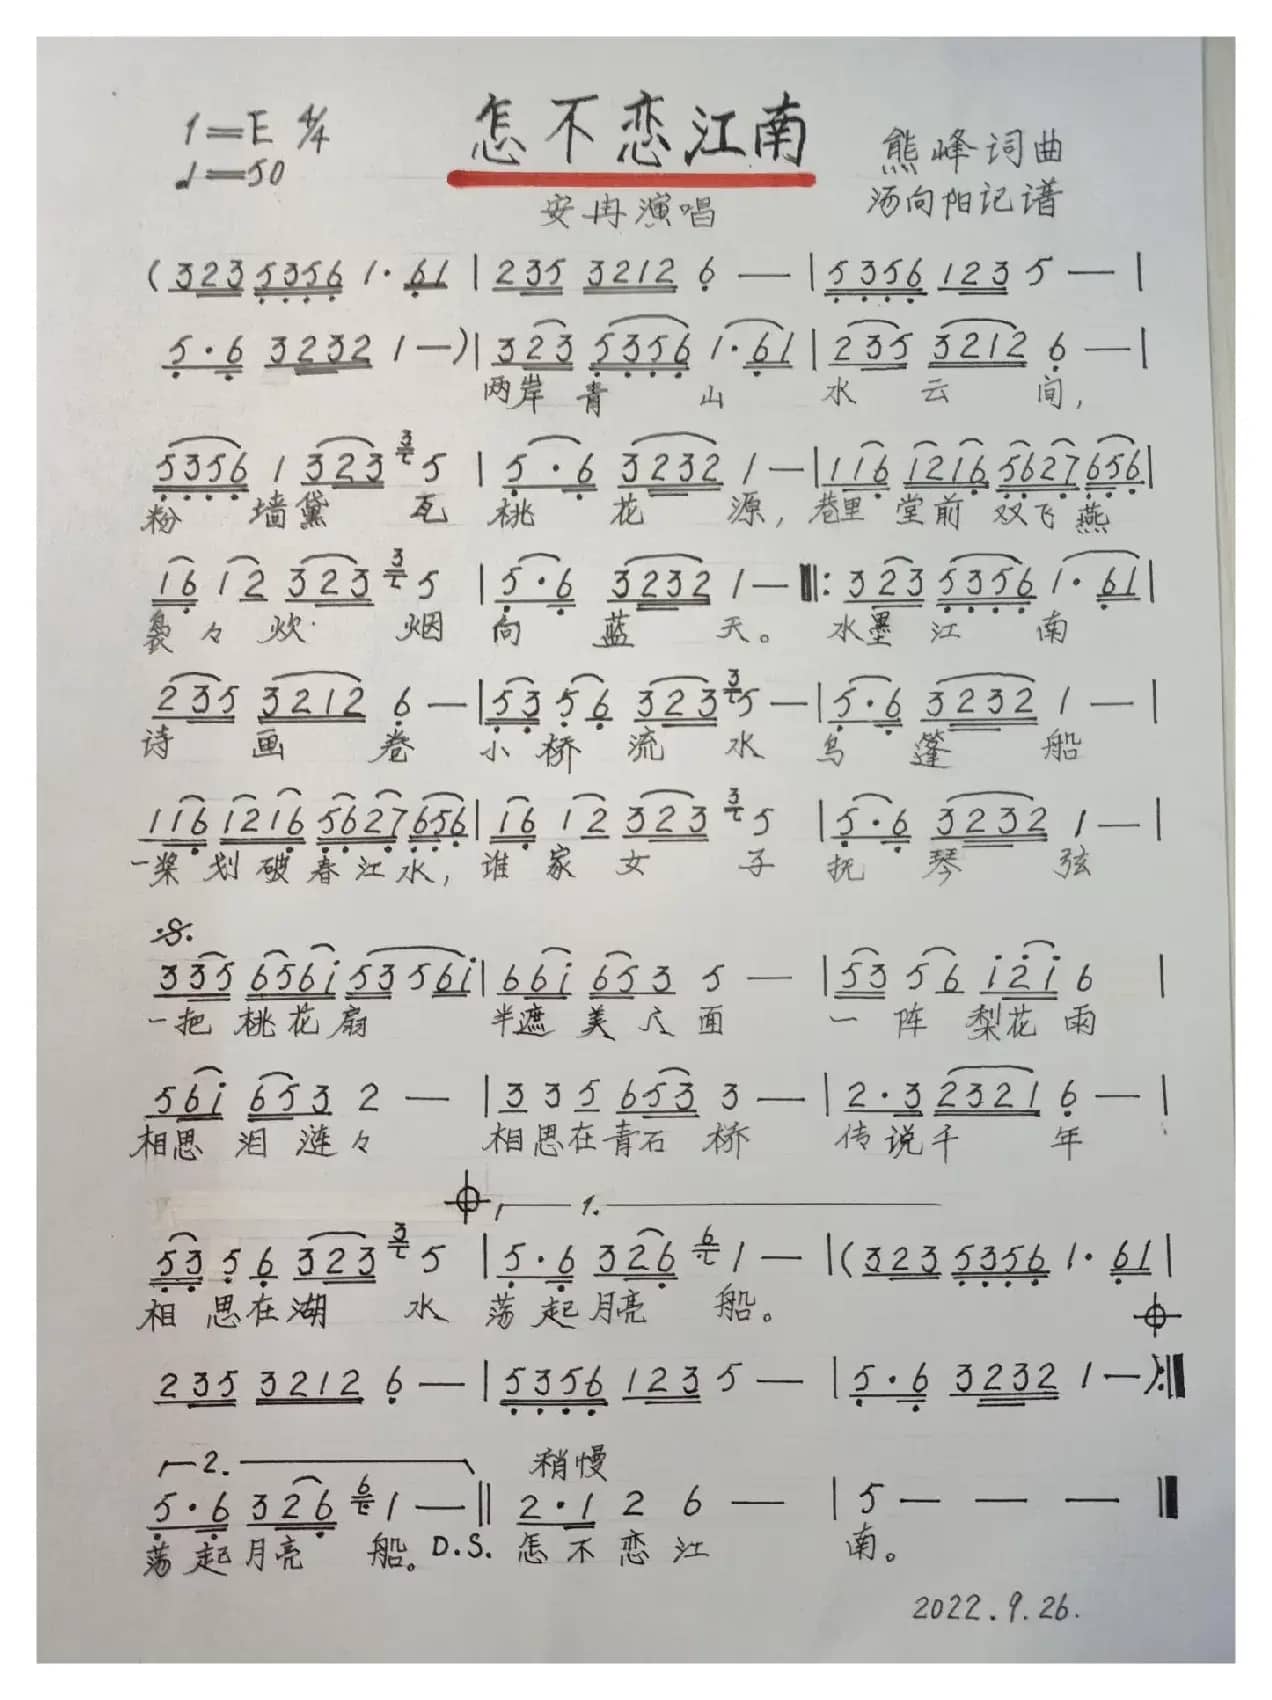 1=E 4/4
怎不恋江南
♩=50
熊峰词曲
安冉演唱
汤向阳记谱
(323 5356 1·61 | 235 3212 6 — | 5356 123 5 — |
5·6 3232 1 —)| 323 5356 1·61 | 235 3212 6 — |
两岸青山 水云间,
5356 1 323 3 5 | 5·6 3232 1 — | 116 1216 5627 656 |
粉墙黛瓦 桃花源, 巷里堂前双飞燕
16 12 323 3 5 | 5·6 3232 1 — ‖: 323 5356 1·61 |
袅々炊烟 向蓝天。 水墨江南
235 3212 6 — | 53 56 323 3 5 — | 5·6 3232 1 — |
诗画卷 小桥流水 乌篷船
116 1216 5627 656 | 16 12 323 3 5 | 5·6 3232 1 — |
一桨划破春江水, 谁家女子 抚琴弦
𝄋
335 656i 53561i | 66i 653 5 — | 53 56 i2i 6 |
一把桃花扇 半遮美人面 一阵梨花雨
56i 653 2 — | 3 3 5 653 3 — | 2·3 2321 6 — |
相思泪涟々 相思在青石桥 传说千年
𝄌 1.
53 5 6 323 3 5 | 5·6 326 6 1 — | (323 5356 1·61 |
相思在湖水 荡起月亮船。
𝄌
235 3212 6 — | 5356 123 5 — | 5·6 3232 1 —):‖
2. 稍慢
5·6 326 6 1 — ‖ 2·1 2 6 — | 5 — — — ‖
荡起月亮船。 D.S. 怎不恋江南。
2022.9.26.